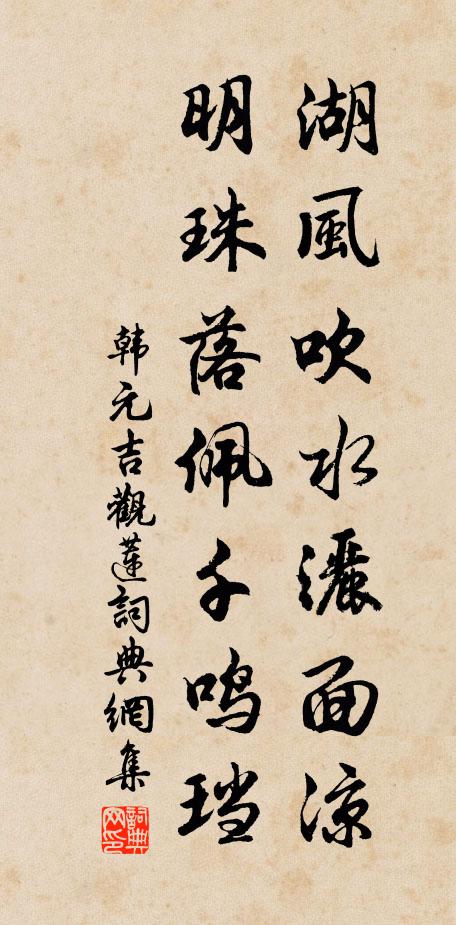 湖風吹水灑面涼
明珠落佩千鸣珰
韩元吉觀蓮詞典網集
詞典网印